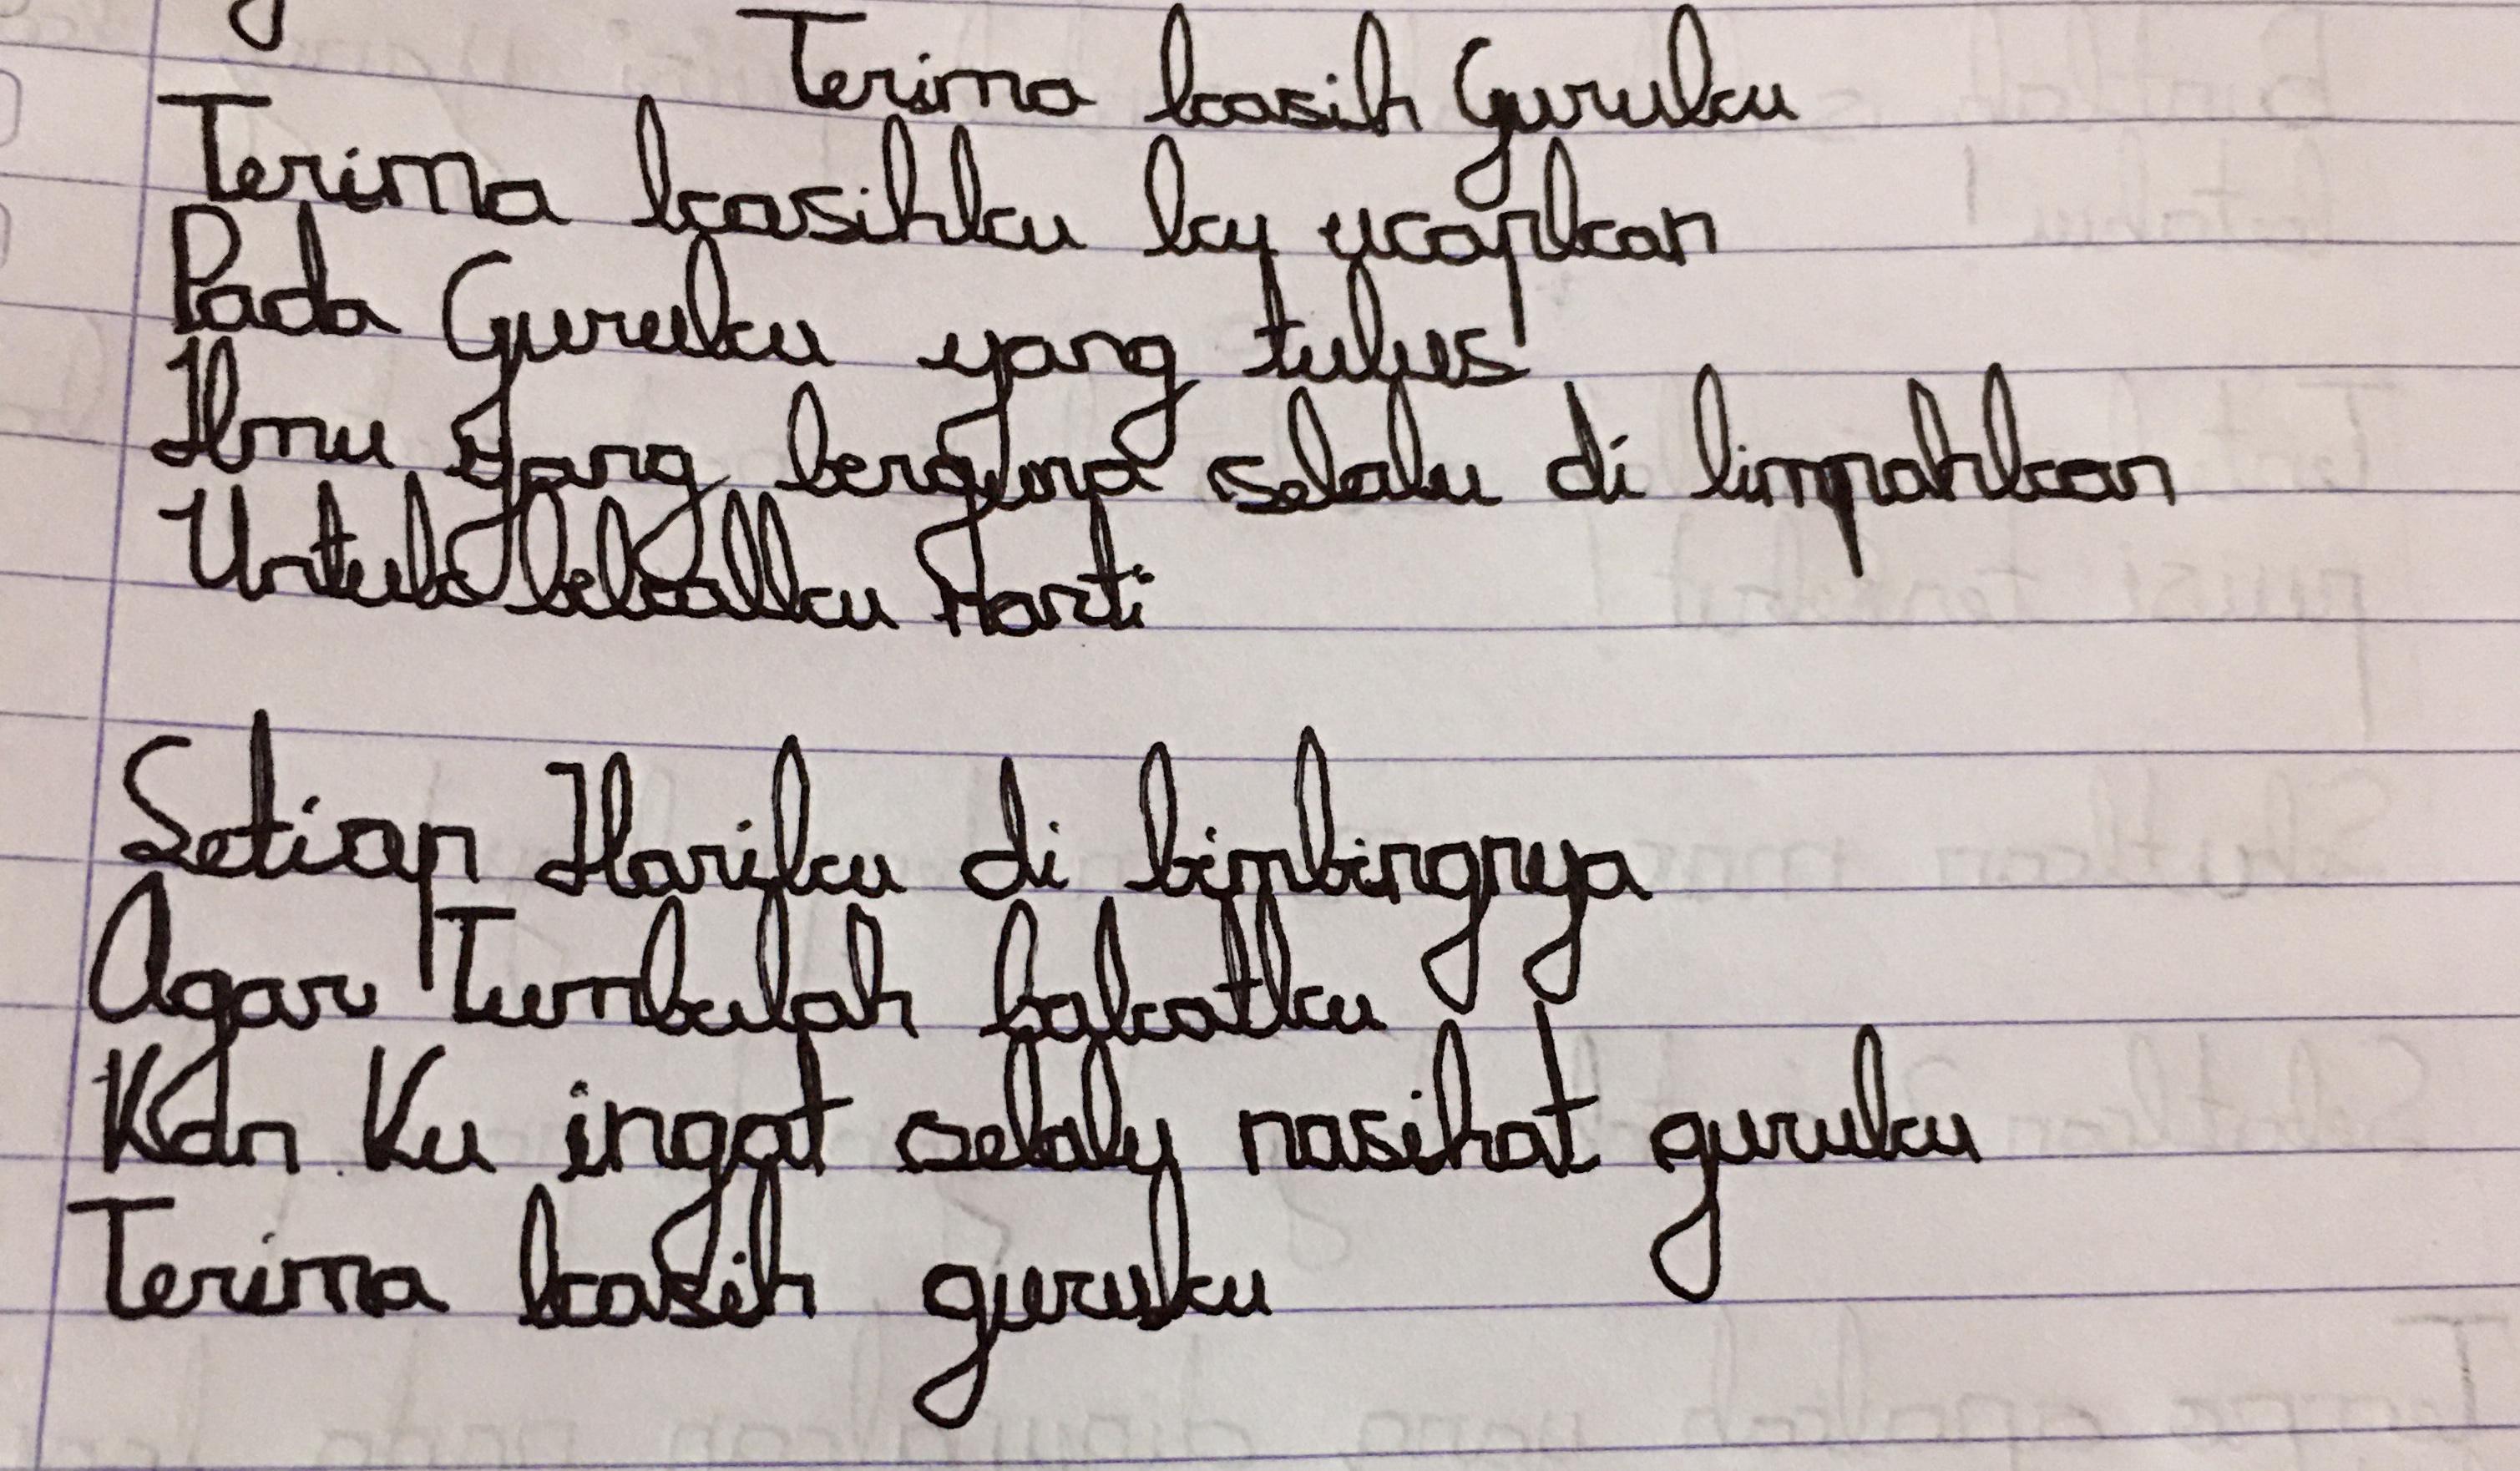 Terima kasih Guruku
Terima kasihku ku ucapkan
Pada Guruku yang tulus
Ilmu yang berguna selalu di limpahkan
Untuk bekalku Nanti
Setiap Hariku di bimbingnya
Agar Tumbulah bakatku
Kan Ku ingat selalu nasihat guruku
Terima kasih guruku